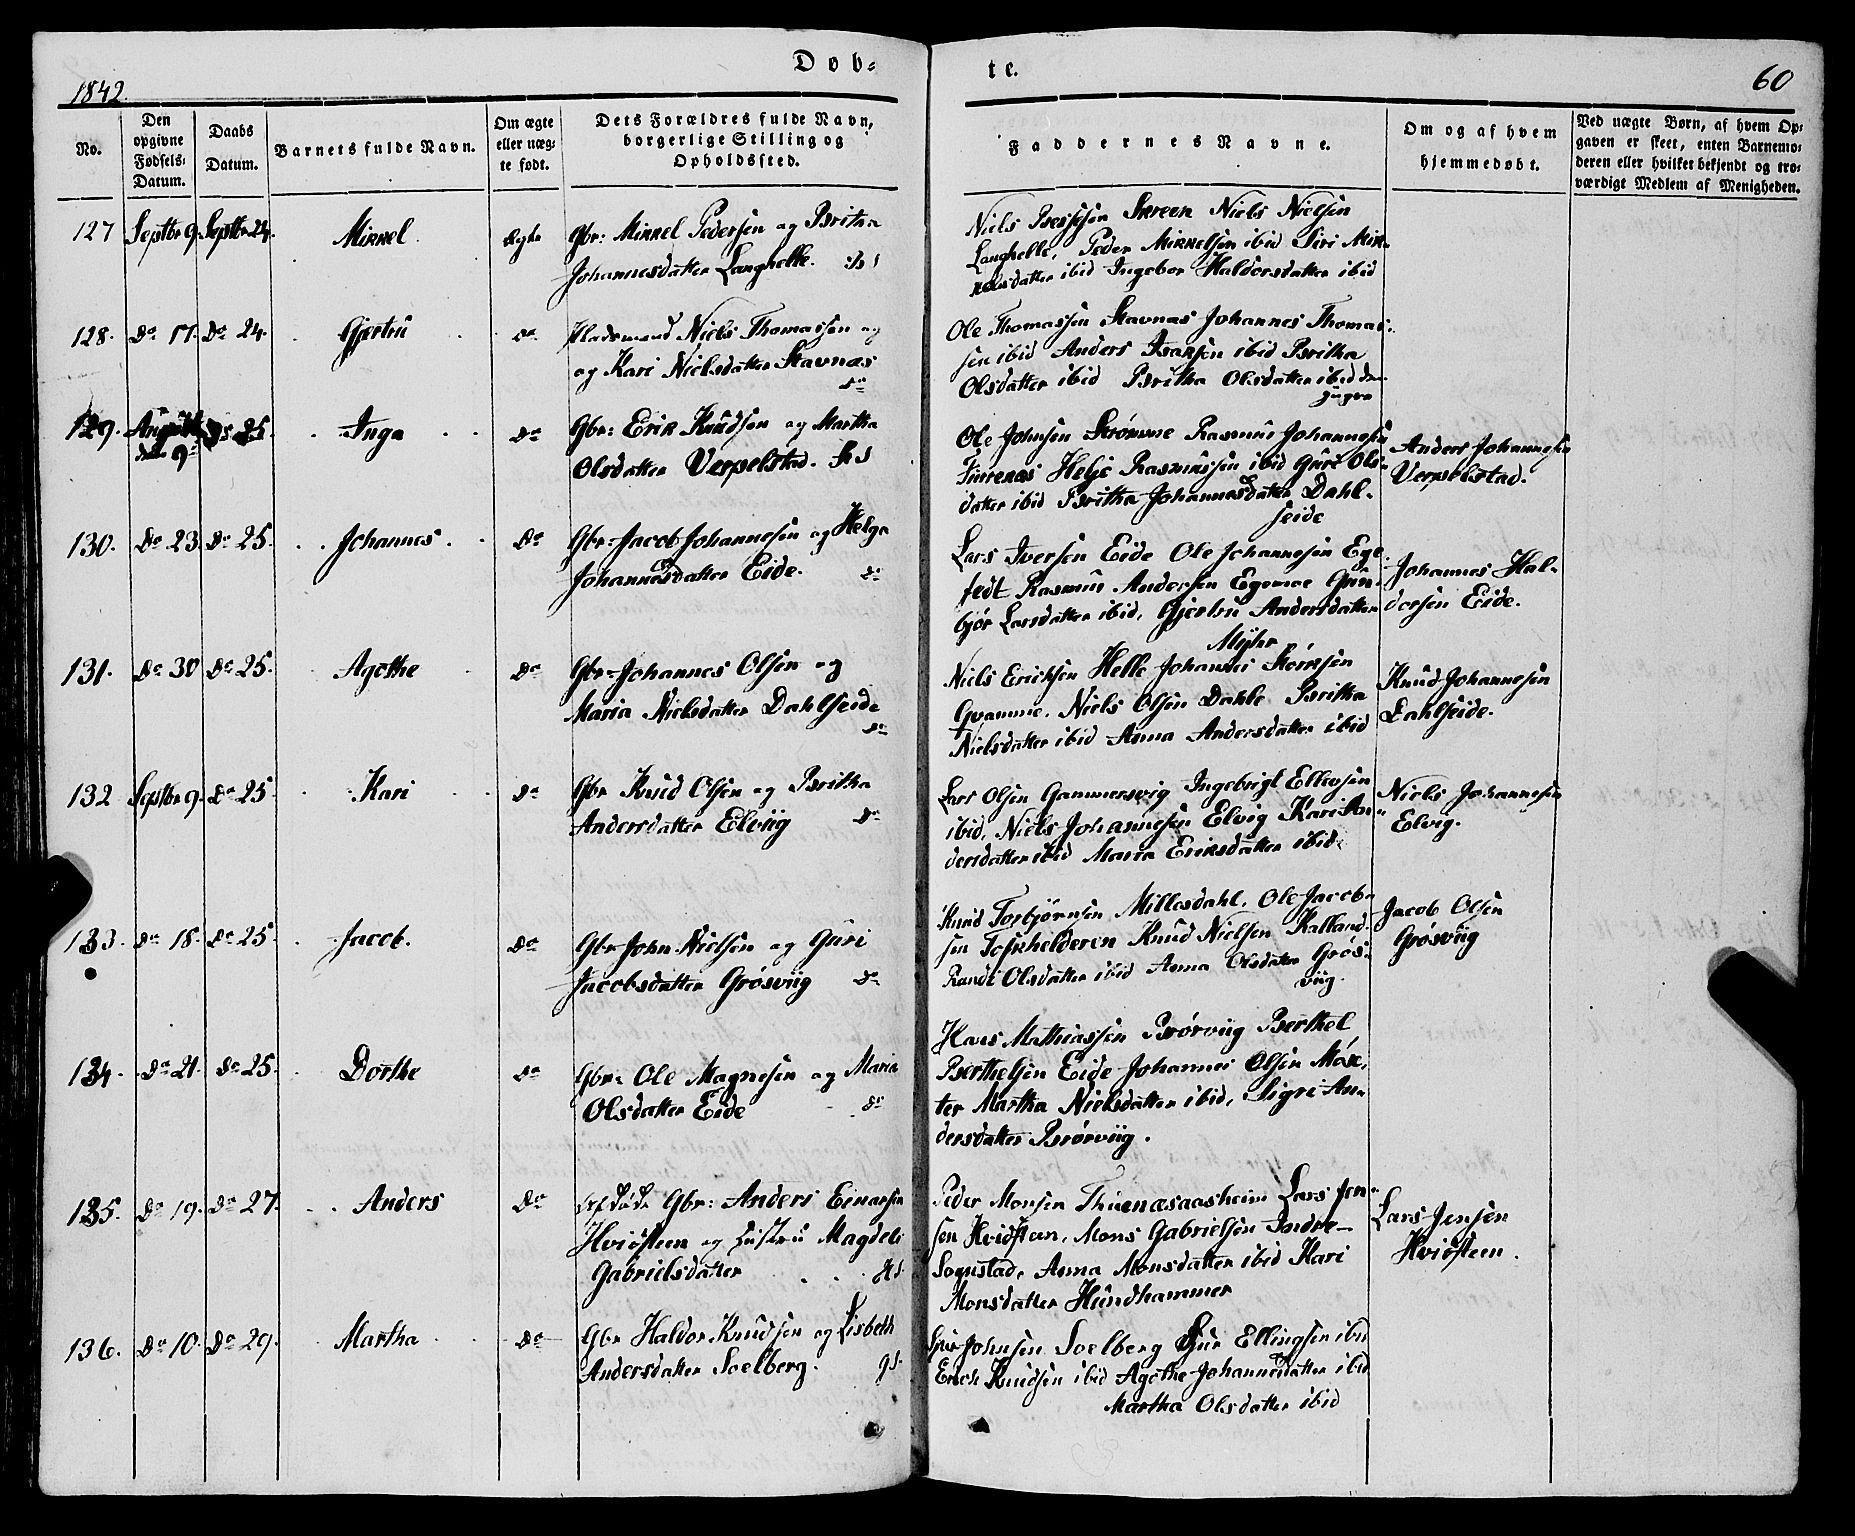 1842.
Døb-
te.
60
No.
Den opgivne Fødsels-Datum.
Daabs Datum.
Barnets fulde Navn.
Om ægte eller uæg-te født.
Dets Forældres fulde Navn, borgerlige Stilling og Opholdssted.
Faddernes Navne.
Om og af hvem hjemmedøbt.
Ved uægte Børn, af hvem Op-
gaven er skeet, enten Barnemo-
deren eller hvilket bekjendt og tro-
værdigt Medlem af Menigheden.
127 Septbr 9. Septbr 24. Mikkel. Ægte Gbr: Mikkel Pedersen og Britha
Johannesdatter Langhelle.
Niels Nielsen
Langhelle, Peder Mikkelsen ibid Siri Mik-
kelsdatter ibid Ingebor Haldorsdatter ibid
128. Do 17. Do 24. Gjertru Do Niels Thomassen og
og Kari Nielsdatter Stavnæs
Do
Ole Thomassen Stavnæs Johannes Thomas-
sen ibid Anders Isaksen ibid Britha
Olsdatter ibid Britha Olsdatter ibid den
yngre
129. August den 9 Do 25. Inga Do Gbr: Erik Knudsen og Martha
Olsdatter Verpelstad.
Ole Johnsen Strømme Rasmus Johannesen
Furenæs Helje Rasmussen ibid Guri Ols-
datter ibid Britha Johannesdatter Dahl-
seide
Anders Johannesen
Verpelstad.
130. Do 23. Do 25. Johannes. Do Gbr: Jacob Johannesen og Helga
Johannesdatter Eide. Do
Lars Iversen Eide Ole Johannesen Ege-
fedt Rasmus Andersen Egemoe Gun-
bjør Larsdatter ibid, Gjertru Andersdatter
Myhr
Johannes Hal-
dorsen Eide.
131. Do 30 Do 25. Agothe Do Gbr: Johannes Olsen og
Maria Nielsdatter Dahlseide
Do
Niels Ericksen Helle Johannes
Qvamme. Niels Olsen Dahle Britha
Nielsdatter ibid Anna Andersdatter ibid
Knud Johannesen
Dahlseide.
132 Septbr 9. Do 25 Kari Do Gbr Knud Olsen og Britha
Andersdatter Elviig Do
Lars Olsen Gammersvig Ingebrigt Ellevsen
ibid, Niels Johannesen Elvig Kari An-
dersdatter ibid Maria Eriksdatter ibid.
Niels Johannesen
Elvig.
133. Do 18. Do 25. Jacob. Do Gbr John Nielsen og Guri
Jacobsdatter Grøsviig Do
Knud Torbjørnsen Millesdahl, Ole Jacob-
sen Knud Nielsen Kalland
Randi Olsdatter ibid Anna Olsdatter Grøs-
viig.
Jacob Olsen
Grøsviig
134. Do 21. Do 25. Dorthe Do Gbr: Ole Magnesen og Maria
Olsdatter Eide Do
Hans Mathiassen Brørviig Berthel
Berthelsen Eide Johannes Olsen Møs-
ter Martha Nielsdatter ibid, Sigri An-
dersdatter Brørviig.
135. Do 19. Do 27. Anders Do Gbr: Anders Einarsen
Hvidsteen og Hustru Magdeli
Gabrielsdatter
Peder Monsen Lars Jen-
sen Hvidsteen, Mons Gabrielsen Indre-
Sognstad, Anna Monsdatter ibid Kari
Monsdatter Hundhammer
Lars Jensen
Hvidsteen.
136. Do 10. Do 29. Martha Do Gbr Haldor Knudsen og Lisbeth
Andersdatter Soelberg.
Johnsen Soelberg Sjur Ellingsen ibid
Erick Knudsen ibid Agothe Johannesdatter ibid
Martha Olsdatter ibid